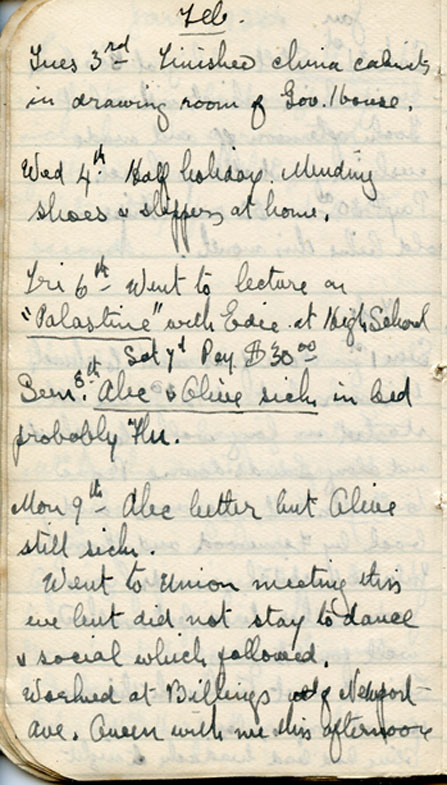 Feb.
Tues 3rd Finished china cabinets
in drawing room of Gov. House.
Wed 4th Half holiday Mending
shoes & slippers at home.
Fri 6th Went to lecture on
"Palastine" with Edie at High School
Sat 7th Pay $30.00
Sun. 8th. Alec & Olive sick in bed
probably Flu.
Mon 9th Alec better but Olive
still sick.
Went to Union meeting this
eve but did not stay to dance
& social which followed.
Worked at Billings of Newport
Ave. Queen with me this afternoon